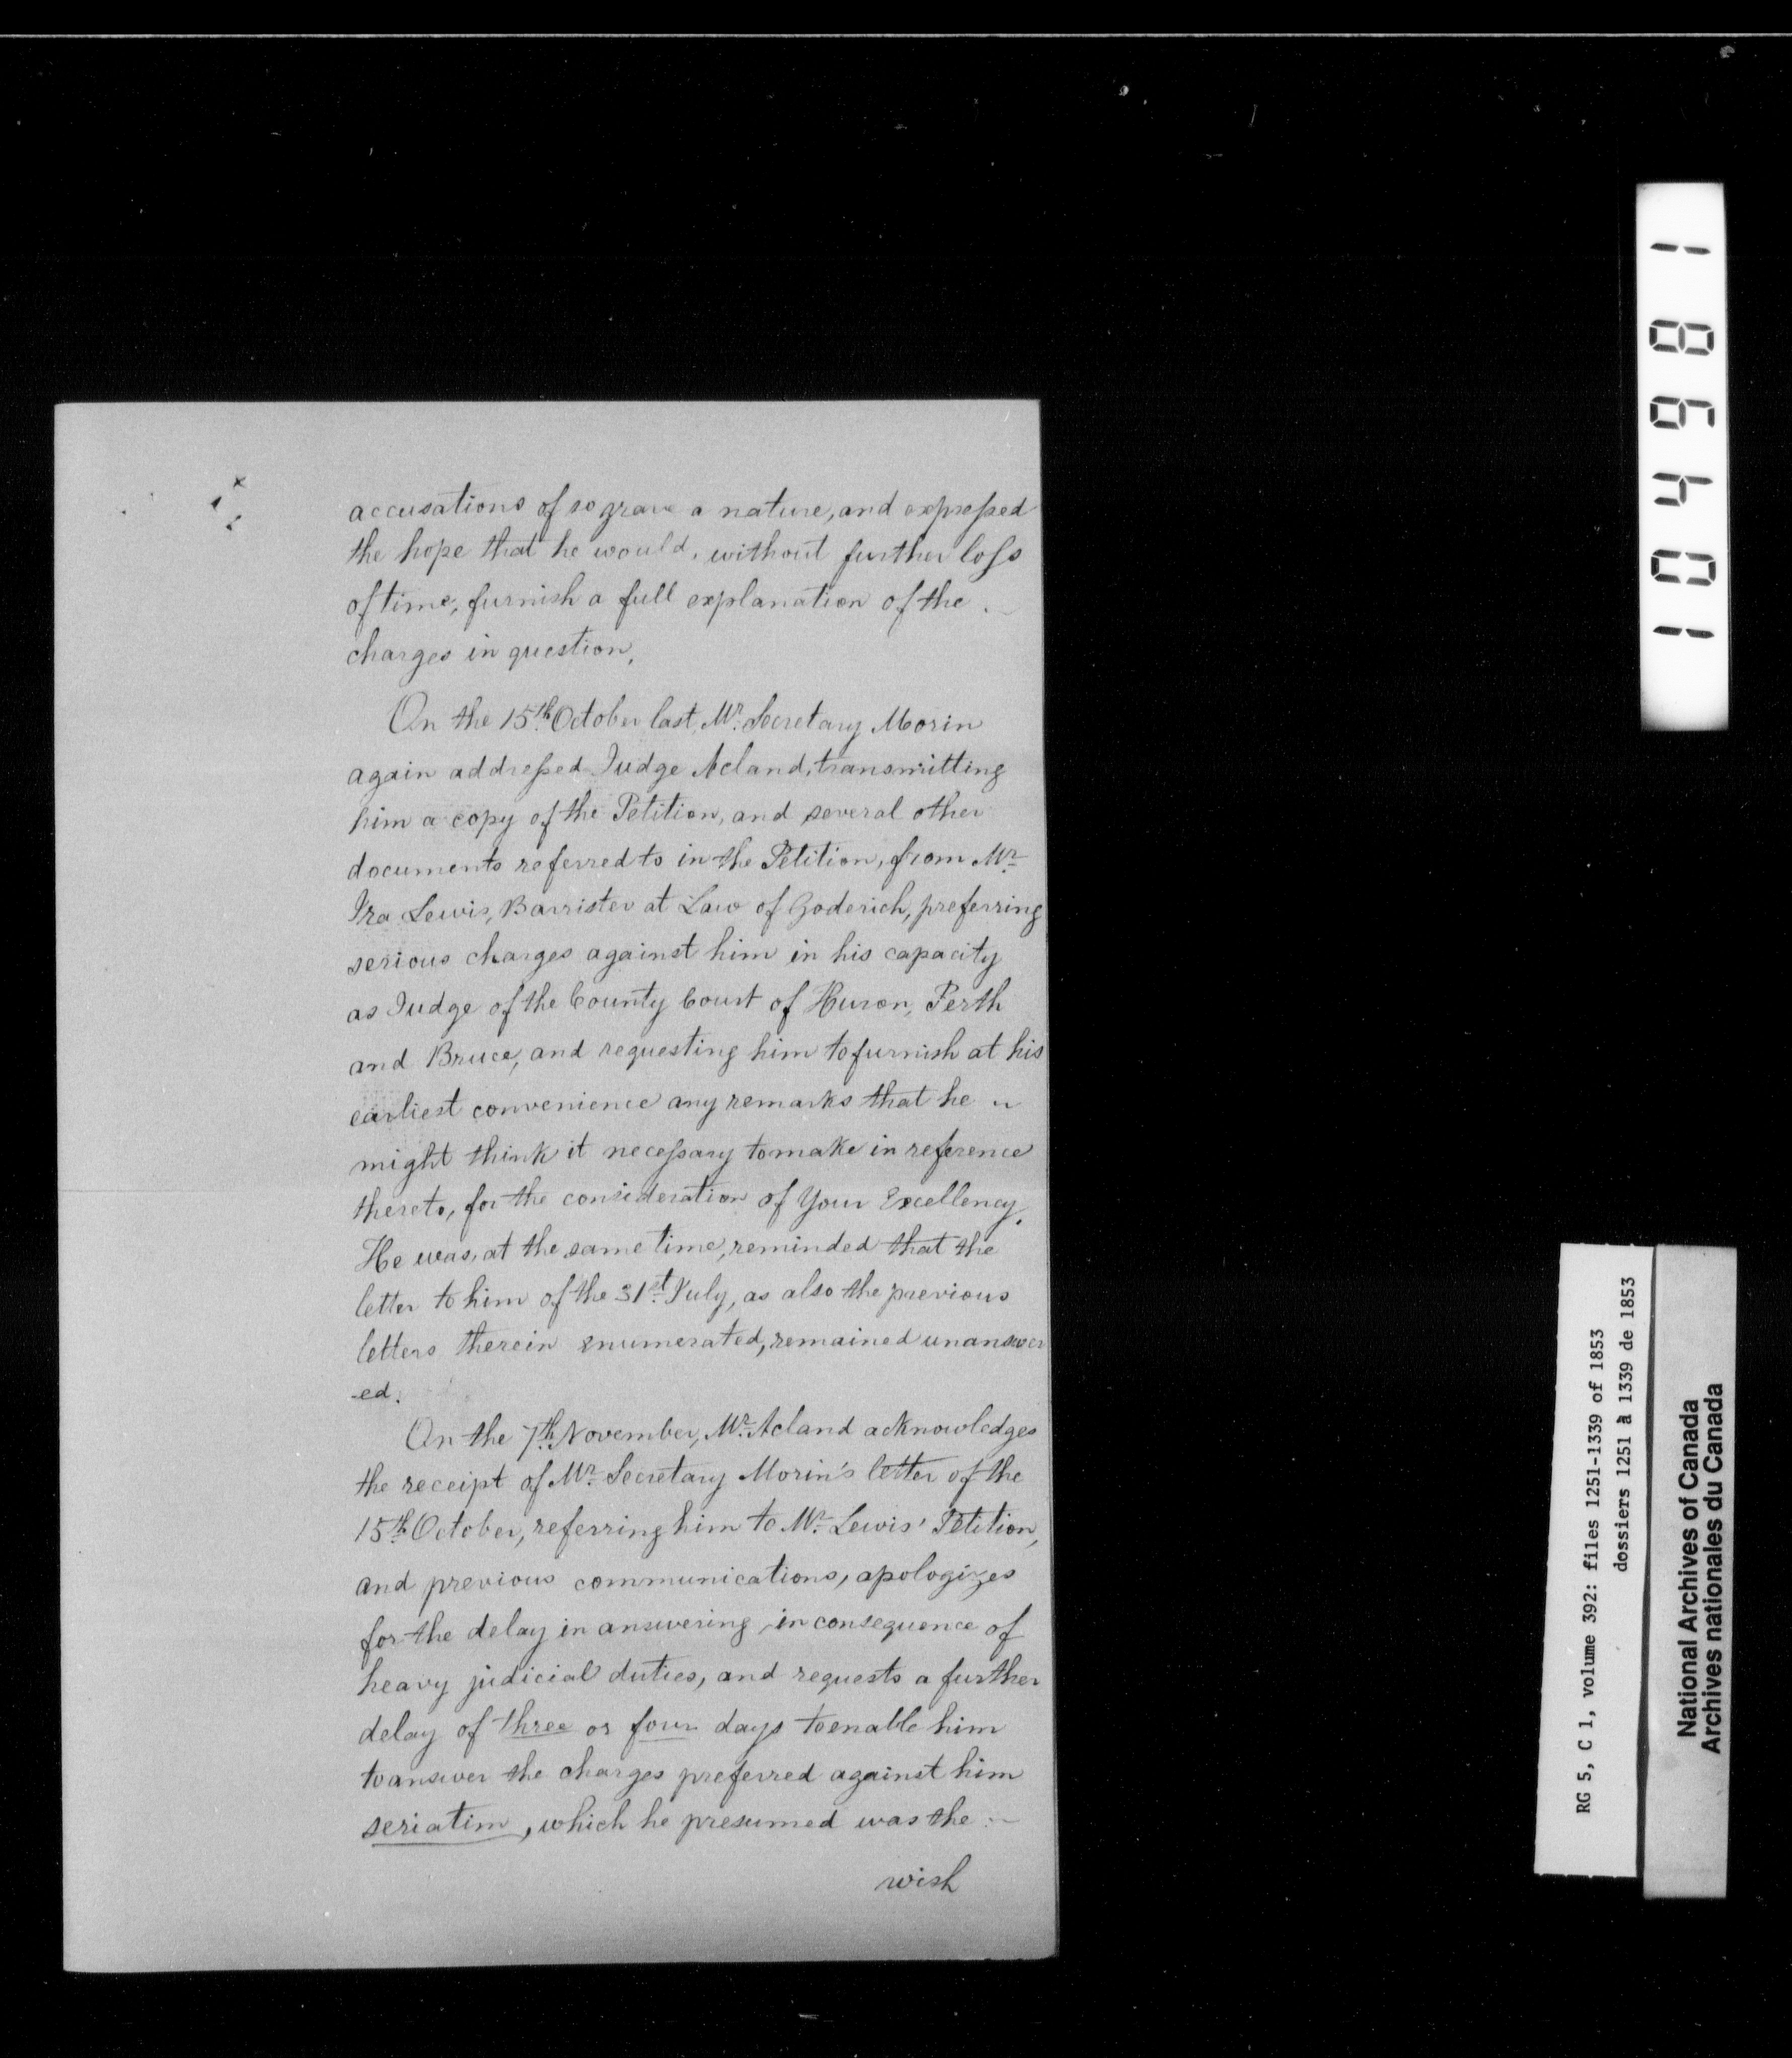 accusations of so grave a nature, and expressed
the hope that he would, without further loss
of time, furnish a full explanation of the
charges in question.
On the 15th October last, Mr. Secretary Morin
again addressed Judge Acland, transmitting
him a copy of the Petition, and several other
documents referred to in the Petition, from Mr.
Ira Lewis, Barrister at Law of Goderich, preferring
serious charges against him in his capacity
as Judge of the County Court of Huron, Perth
and Bruce, and requesting him to furnish at his
earliest convenience any remarks that he
might think it necessary to make in reference
thereto, for the consideration of Your Excellency.
He was, at the same time, reminded that the
letter to him of the 31st July, as also the previous
letters therein enumerated, remained unanswer
-ed.
On the 7th November, Mr. Acland acknowledges
the receipt of Mr. Secretary Morin's letter of the
15th October, referring him to Mr. Lewis' Petition,
and previous communications, apologizes
for the delay in answering, in consequence of
heavy judicial duties, and requests a further
delay of three or four days to enable him
to answer the charges preferred against him
seriatim, which he presumed was the
wish
104981
RG 5, C 1, volume 392: files 1251-1339 of 1853
dossiers 1251 à 1339 de 1853
National Archives of Canada
Archives nationales du Canada